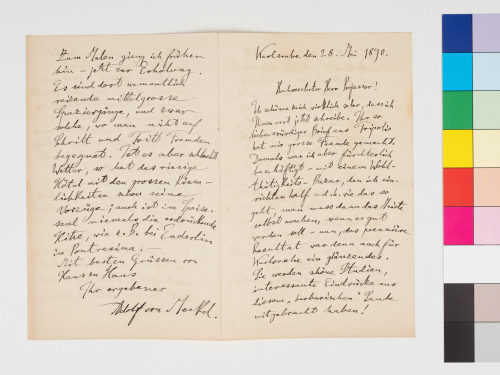 Karlsruhe den 28. Mai 1890.
Hochverehrter Herr Professor!
Ich schäme mich wirklich sehr, dass ich
Ihnen erst jetzt schreibe. Ihr so
liebenswürdiger Brief aus Tripolis
hat mir grosse Freude gemacht.
Damals war ich aber fürchterlich
beschäftigt - mit einem Wohl-
thätigkeits-Bazar, den ich ein-
richten half - d. h. wie das so
geht, man muss dann das Meiste
selbst machen, wenn es gut
werden soll - nun, das pecuniäre
Resultat war denn auch für
Karlsruhe ein glänzendes.
Sie werden schöne Studien,
interessante Eindrücke aus
diesem "barbarischen" Lande
mitgebracht haben!
Zum Malen gieng ich früher
hin - jetzt zur Erholung.
Es sind dort namentlich
reizende mittelgrosse
Spaziergänge, und zwar
solche, wo man nicht auf
Schritt und Tritt Fremden
begegnet. Ist es aber schlecht
Wetter, so hat das riesige
Hôtel mit den grossen Räum-
lichkeiten schon seine
Vorzüge; auch ist im Speise-
saal niemals die erdrückende
Hitze, wie z. B. bei Enderlin
in Pontresina. -
Mit besten Grüssen von
Haus zu Haus
Ihr ergebener
Adolf von Meckel.